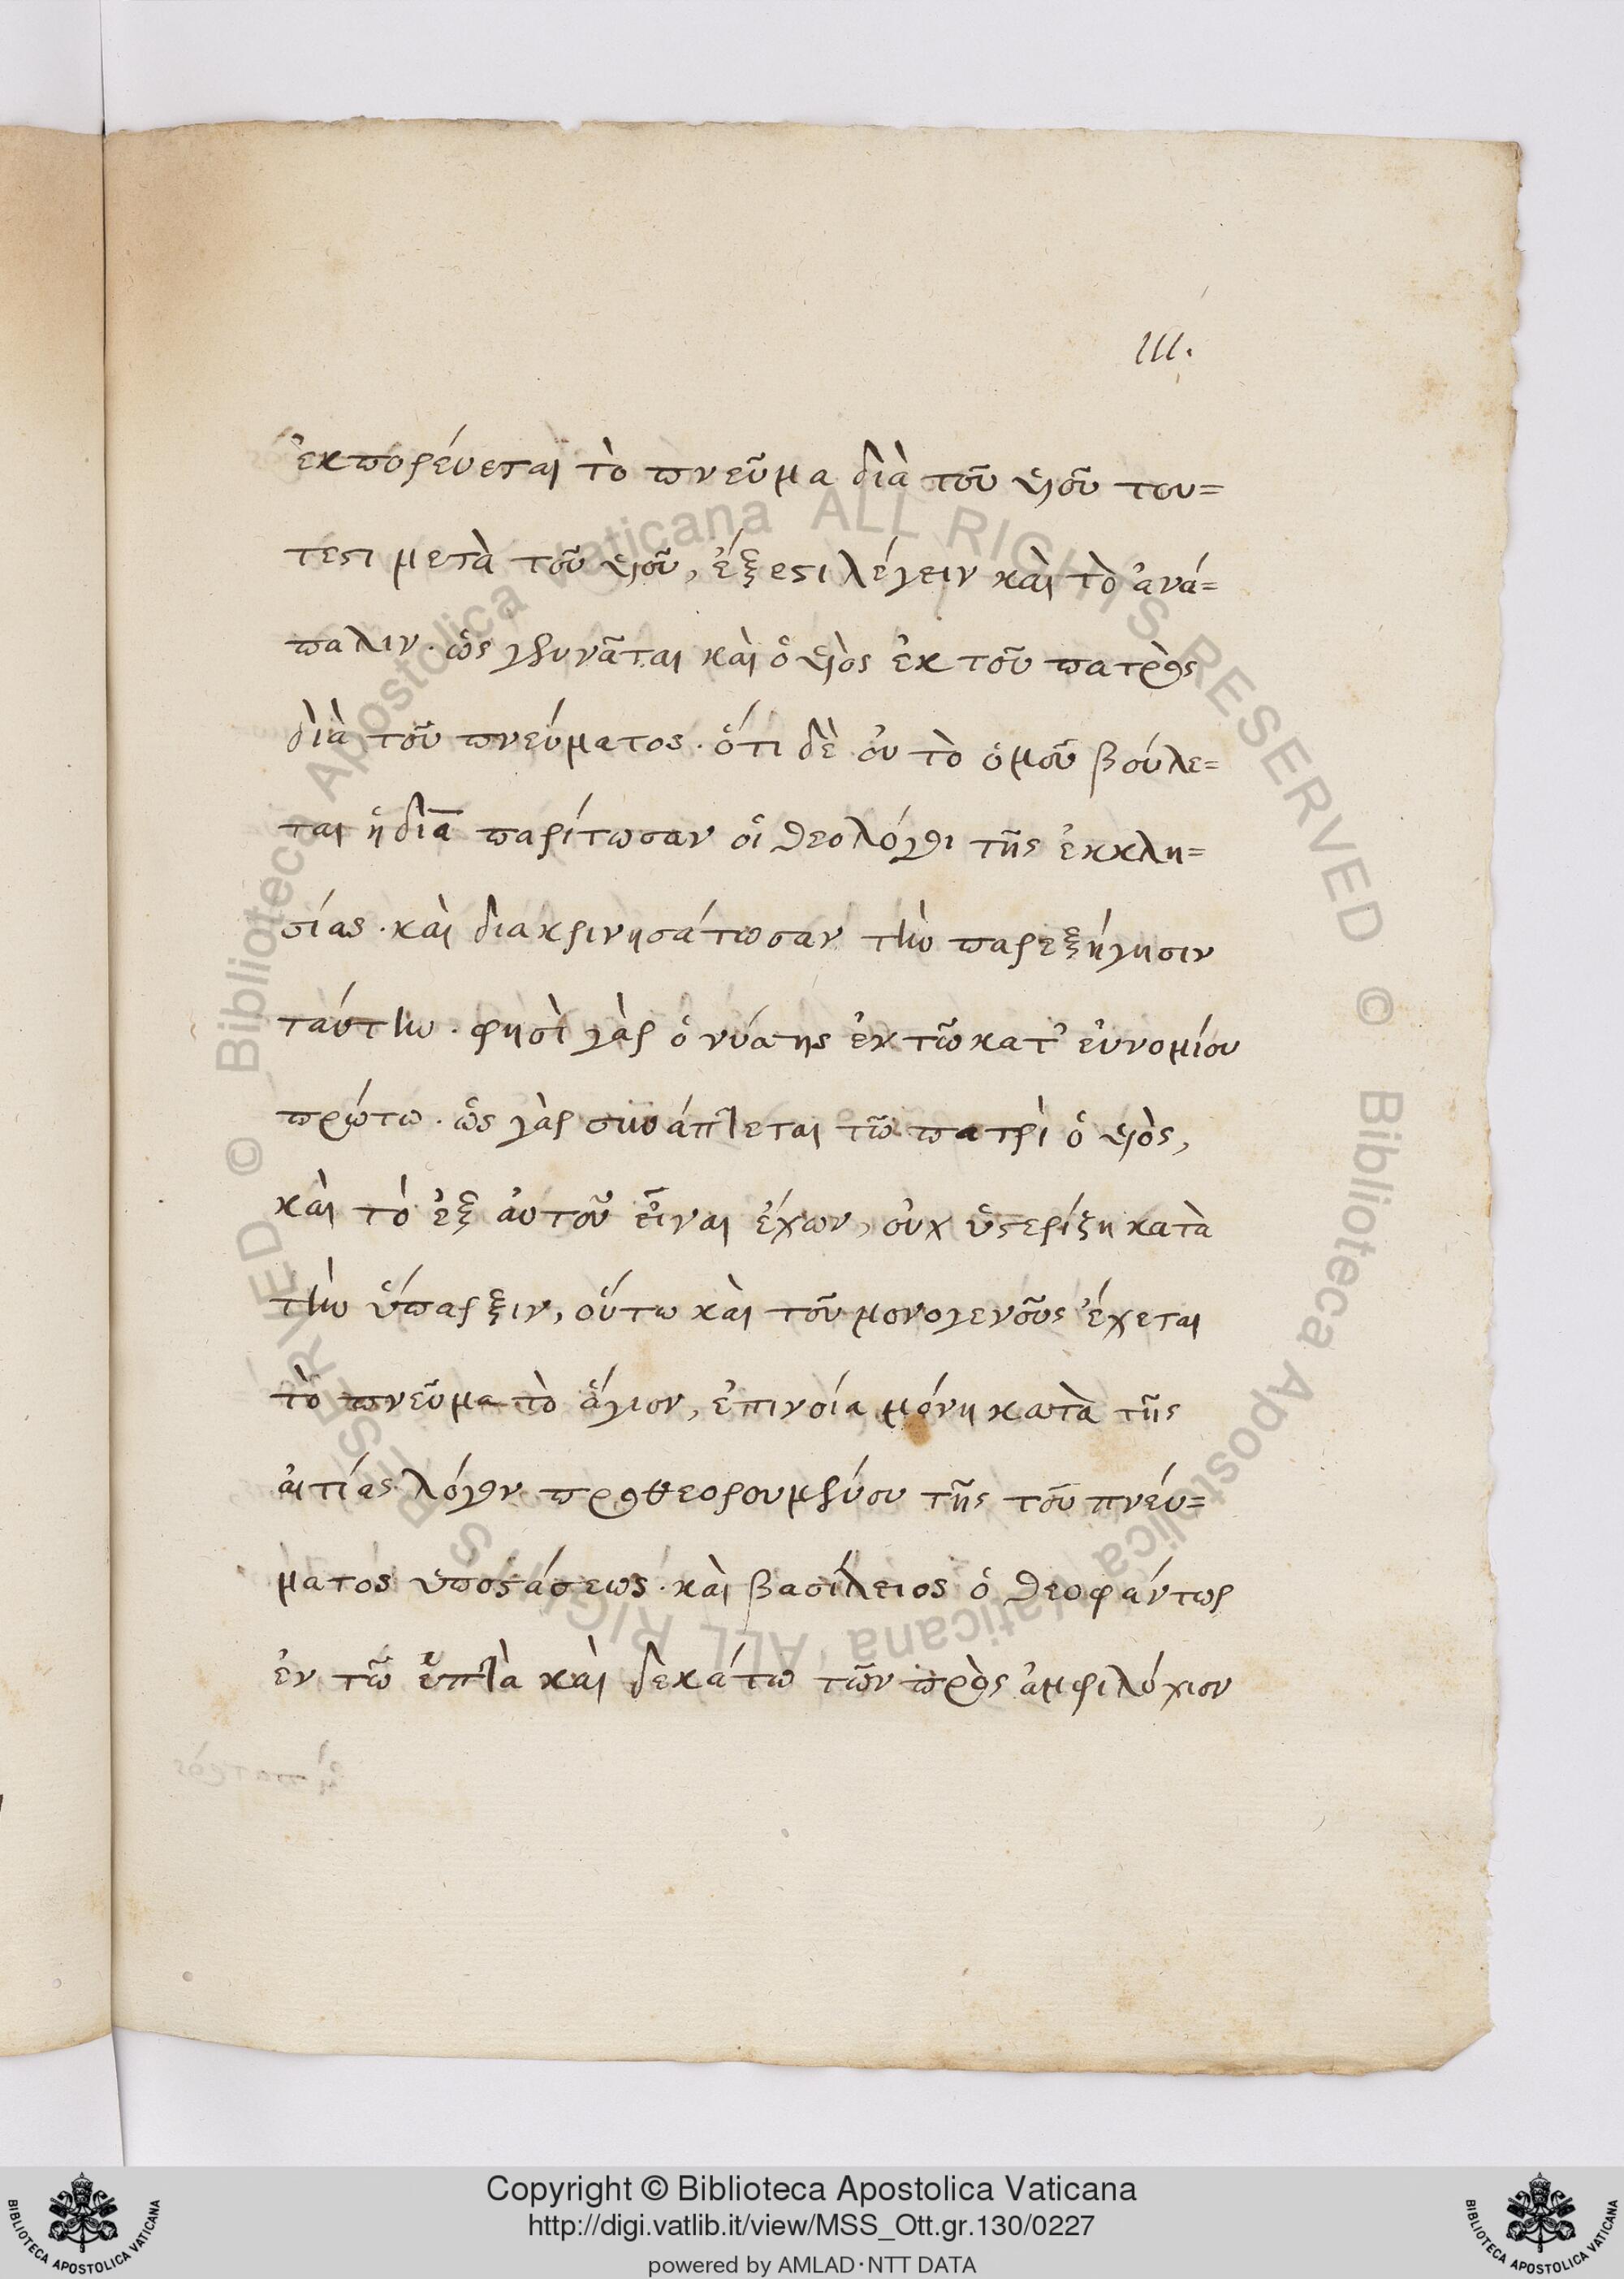 111.
ἐκπορεύεται τὸ πνεῦμα διὰ τοῦ υἱοῦ του=
τέστι μετὰ τοῦ υἱοῦ, ἔξεστι λέγειν καὶ τὸ ἀνά=
παλιν. ὡς γεννᾶται καὶ ὁ υἱὸς ἐκ τοῦ πατρὸς
διὰ τοῦ πνεύματος. ὅτι δὲ οὐ τὸ ὁμοῦ βούλε=
ται ἡ διὰ παρίτωσαν οἱ θεολόγοι τῆς ἐκκλη=
σίας. καὶ διακρινησάτωσαν τὴν παρεξήγησιν
ταύτην. φησὶ γὰρ ὁ νύσης ἐν τῶ κατ' εὐνομίου
πρώτω. ὡς γὰρ συνάπτεται τῶ πατρὶ ὁ υἱὸς,
καὶ τὸ ἐξ αὐτοῦ εἶναι ἔχων, οὐχ ὑστερίζη κατὰ
τὴν ὕπαρξιν, οὕτω καὶ τοῦ μονογενοῦς ἔχεται
τὸ πνεῦμα τὸ ἅγιον, ἐπινοία μόνη κατὰ τῆς
αἰτίας λόγον προθεορουμένου τῆς τοῦ πνεύ=
ματος ὑποστάσεως. καὶ βασίλειος ὁ θεοφάντωρ
ἐν τῶ ἑπτὰ καὶ δεκάτω τῶν πρὸς ἀμφιλόχιον
© Biblioteca Apostolica Vaticana ALL RIGHTS RESERVED
© Biblioteca Apostolica Vaticana ALL RIGHTS RESERVED
Copyright © Biblioteca Apostolica Vaticana
http://digi.vatlib.it/view/MSS_Ott.gr.130/0227
powered by AMLAD・NTT DATA
BIBLIOTECA APOSTOLICA VATICANA
BIBLIOTECA APOSTOLICA VATICANA